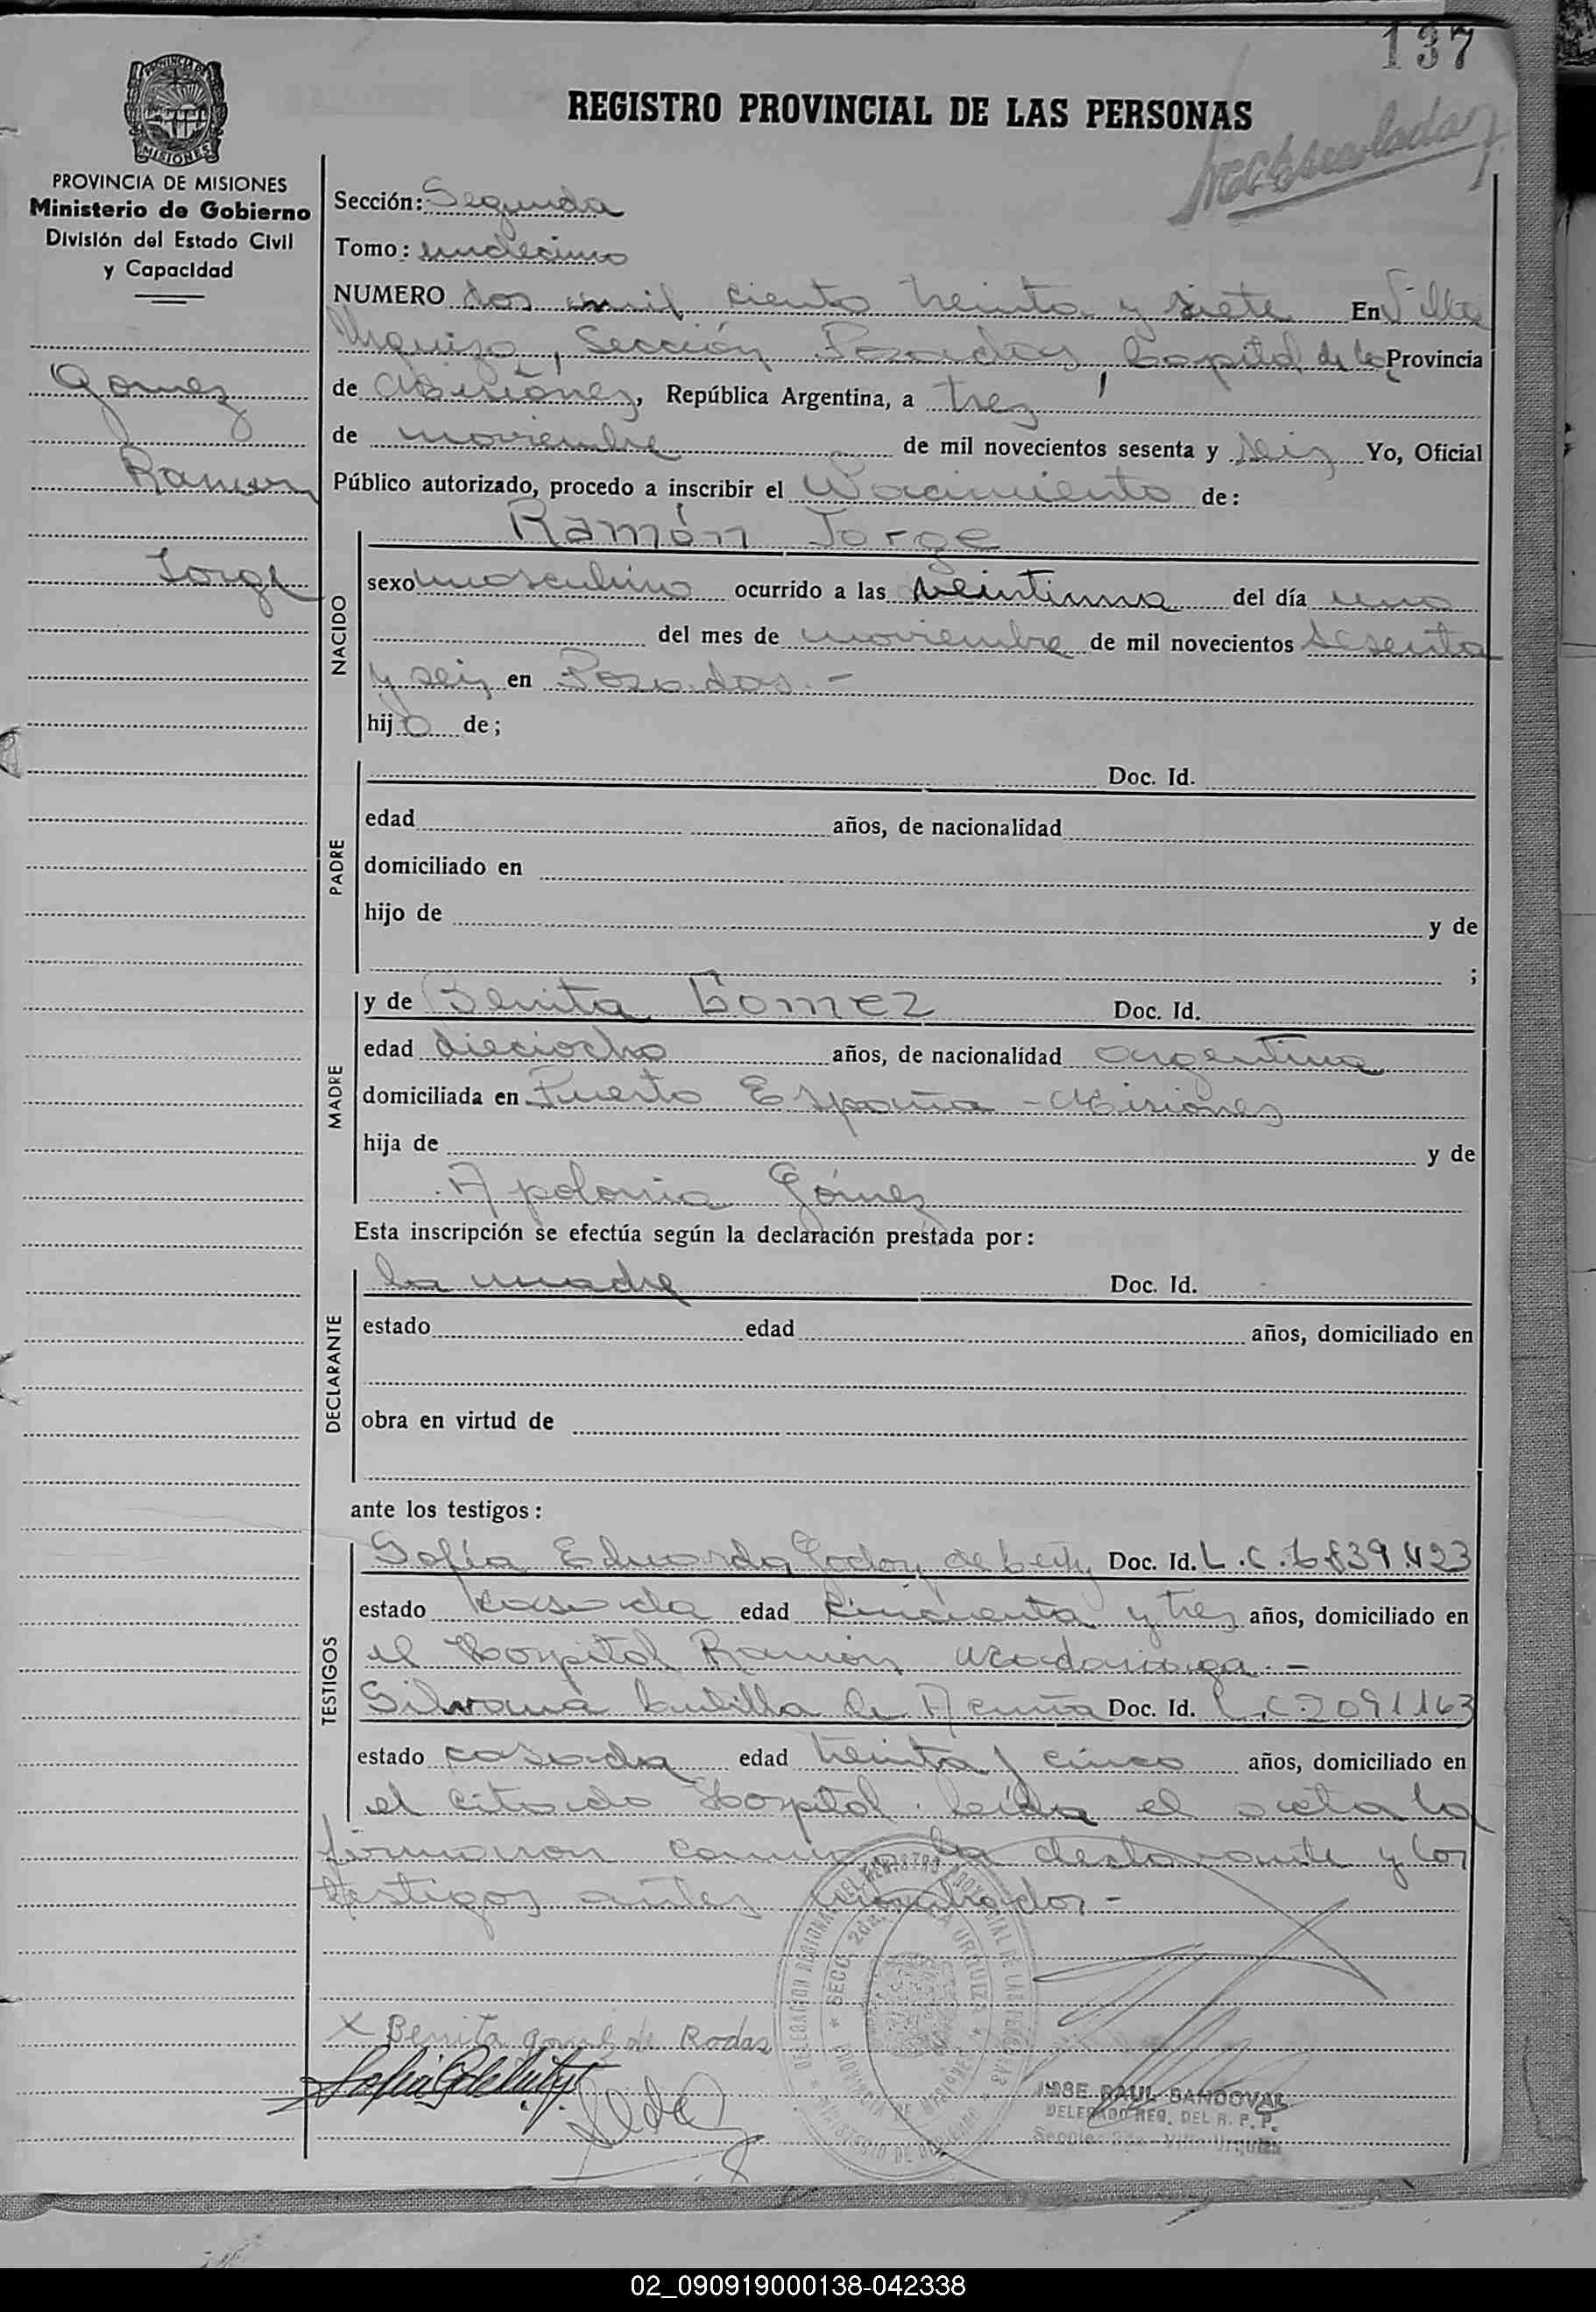 137
REGISTRO PROVINCIAL DE LAS PERSONAS
PROVINCIA DE MISIONES
Ministerio de Gobierno
División del Estado Civil
y Capacidad
Gomez
Ramon
Jorge
Sección: Segunda
Tomo: undecimo
NUMERO dos mil ciento treinta y siete En Villa
Urquiza, Sección Posadas, Capital de la Provincia
de Misiones, República Argentina, a tres
de noviembre de mil novecientos sesenta y seis Yo, Oficial
Público autorizado, procedo a inscribir el Nacimiento de:
Ramón Jorge
NACIDO
sexo masculino ocurrido a las veintiuna del día uno
del mes de noviembre de mil novecientos sesenta
y seis en Posadas.-
hijo de;
PADRE
Doc. Id.
edad años, de nacionalidad
domiciliado en
hijo de y de
;
MADRE
y de Benita Gomez Doc. Id.
edad dieciocho años, de nacionalidad argentina
domiciliada en Puerto España - Misiones
hija de y de
Apolonia Gómez
Esta inscripción se efectúa según la declaración prestada por:
DECLARANTE
la madre Doc. Id.
estado edad años, domiciliado en
obra en virtud de
ante los testigos:
TESTIGOS
Sofía Eduarda Godoy de Doc. Id. L.C.6839.423
estado casada edad cincuenta y tres años, domiciliado en
el Hospital Ramón Madariaga.-
Silvana de Acuña Doc. Id. L.C.2091163
estado casada edad treinta y cinco años, domiciliado en
el citado Hospital. Leída el acta la
firmaron conmigo la declarante y los
testigos antes nombrados-
x Benita de Rodas
DELEGACION REGIONAL DEL REGISTRO PROVINCIAL DE LAS PERSONAS
MINISTERIO DE GOBIERNO
SECC. 2da. VILLA URQUIZA
PROVINCIA DE MISIONES
JOSE RAUL SANDOVAL
DELEGADO REG. DEL R. P. P.
Sección 2da - Villa Urquiza
02_090919000138-042338